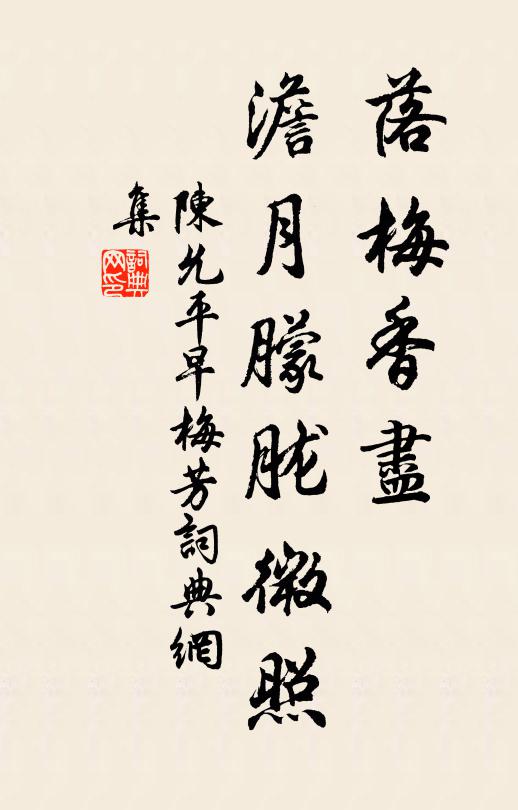 落梅香盡
澹月朦胧微照
陳允平早梅芳詞典網
集
詞典
网印